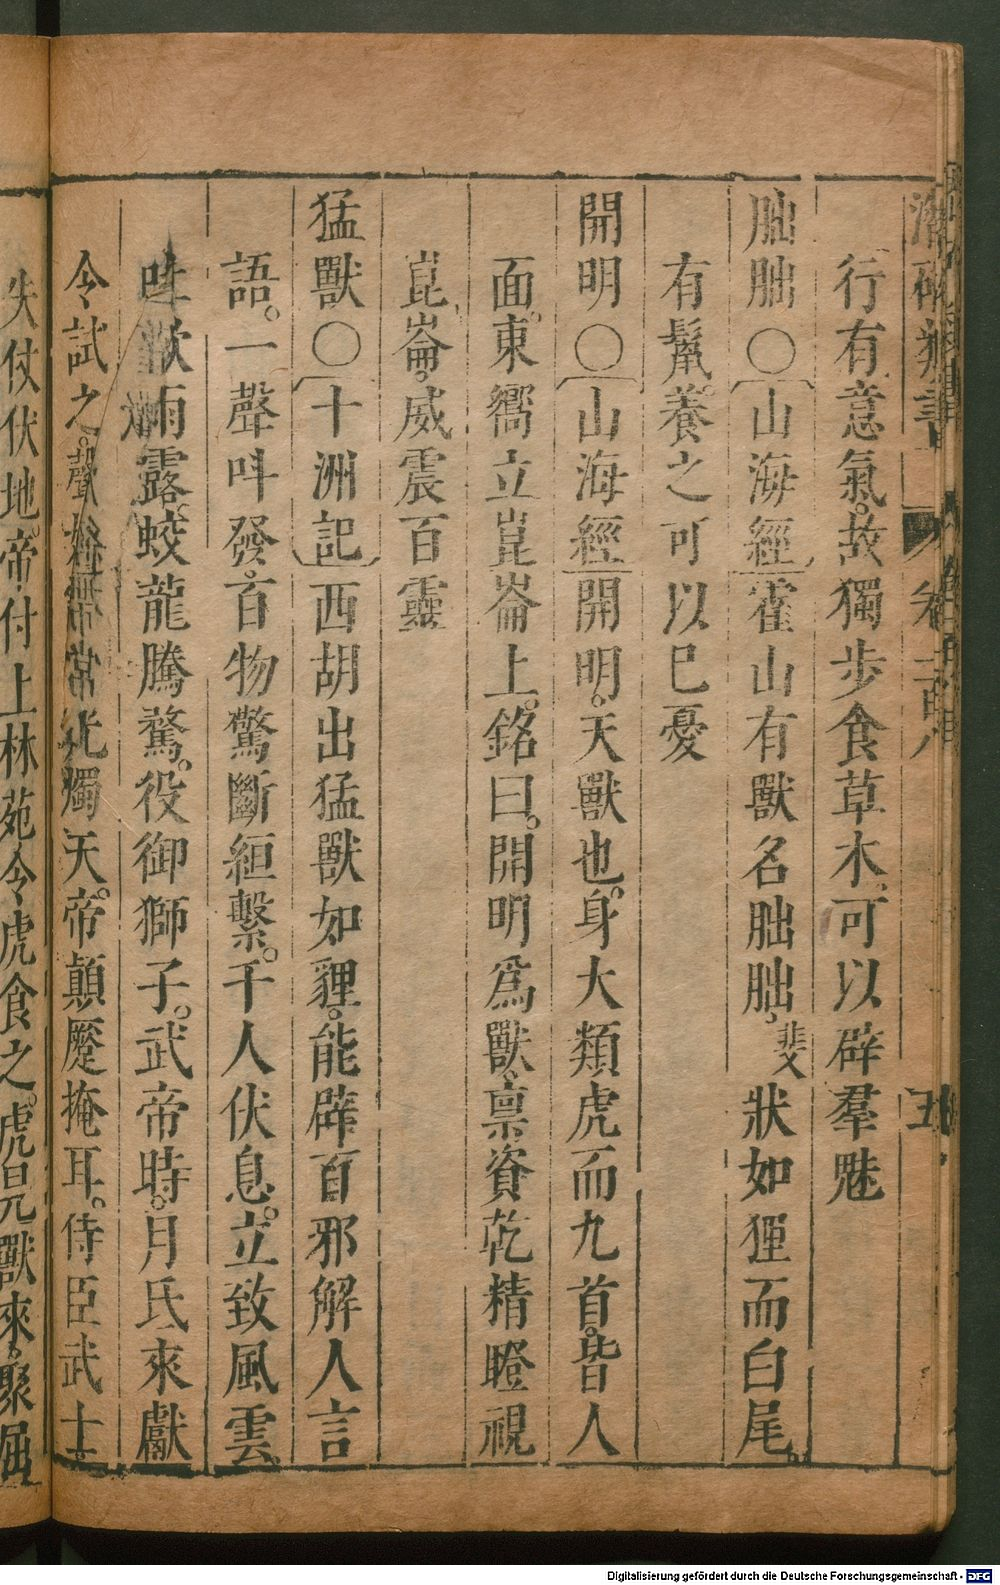 潛確類書 卷一百八 五
行有意氣。故獨步食草木。可以辟羣魅
朏朏〇山海經霍山有獸名朏朏。斐狀如狸而白尾
有鬣。養之可以已憂
開明〇山海經開明。天獸也。身大類虎而九首。皆人
面。東嚮立崑崙上。銘曰。開明為獸。稟資乾精瞪視
崑崙。威震百靈
猛獸〇十洲記西胡出猛獸如貍。能辟百邪解人言
語。一聲呌發。百物驚斷絙繫。千人伏息。立致風雲
吐漱雨露。蛟龍騰驁。役御獅子。武帝時。月氏來獻
今試之。聲 常光燭天。帝顛蹙掩耳。侍臣武士。
失仗伏地。帝付上林苑令虎食之。虎見獸來。聚屈
Digitalisierung gefördert durch die Deutsche Forschungsgemeinschaft - DFG